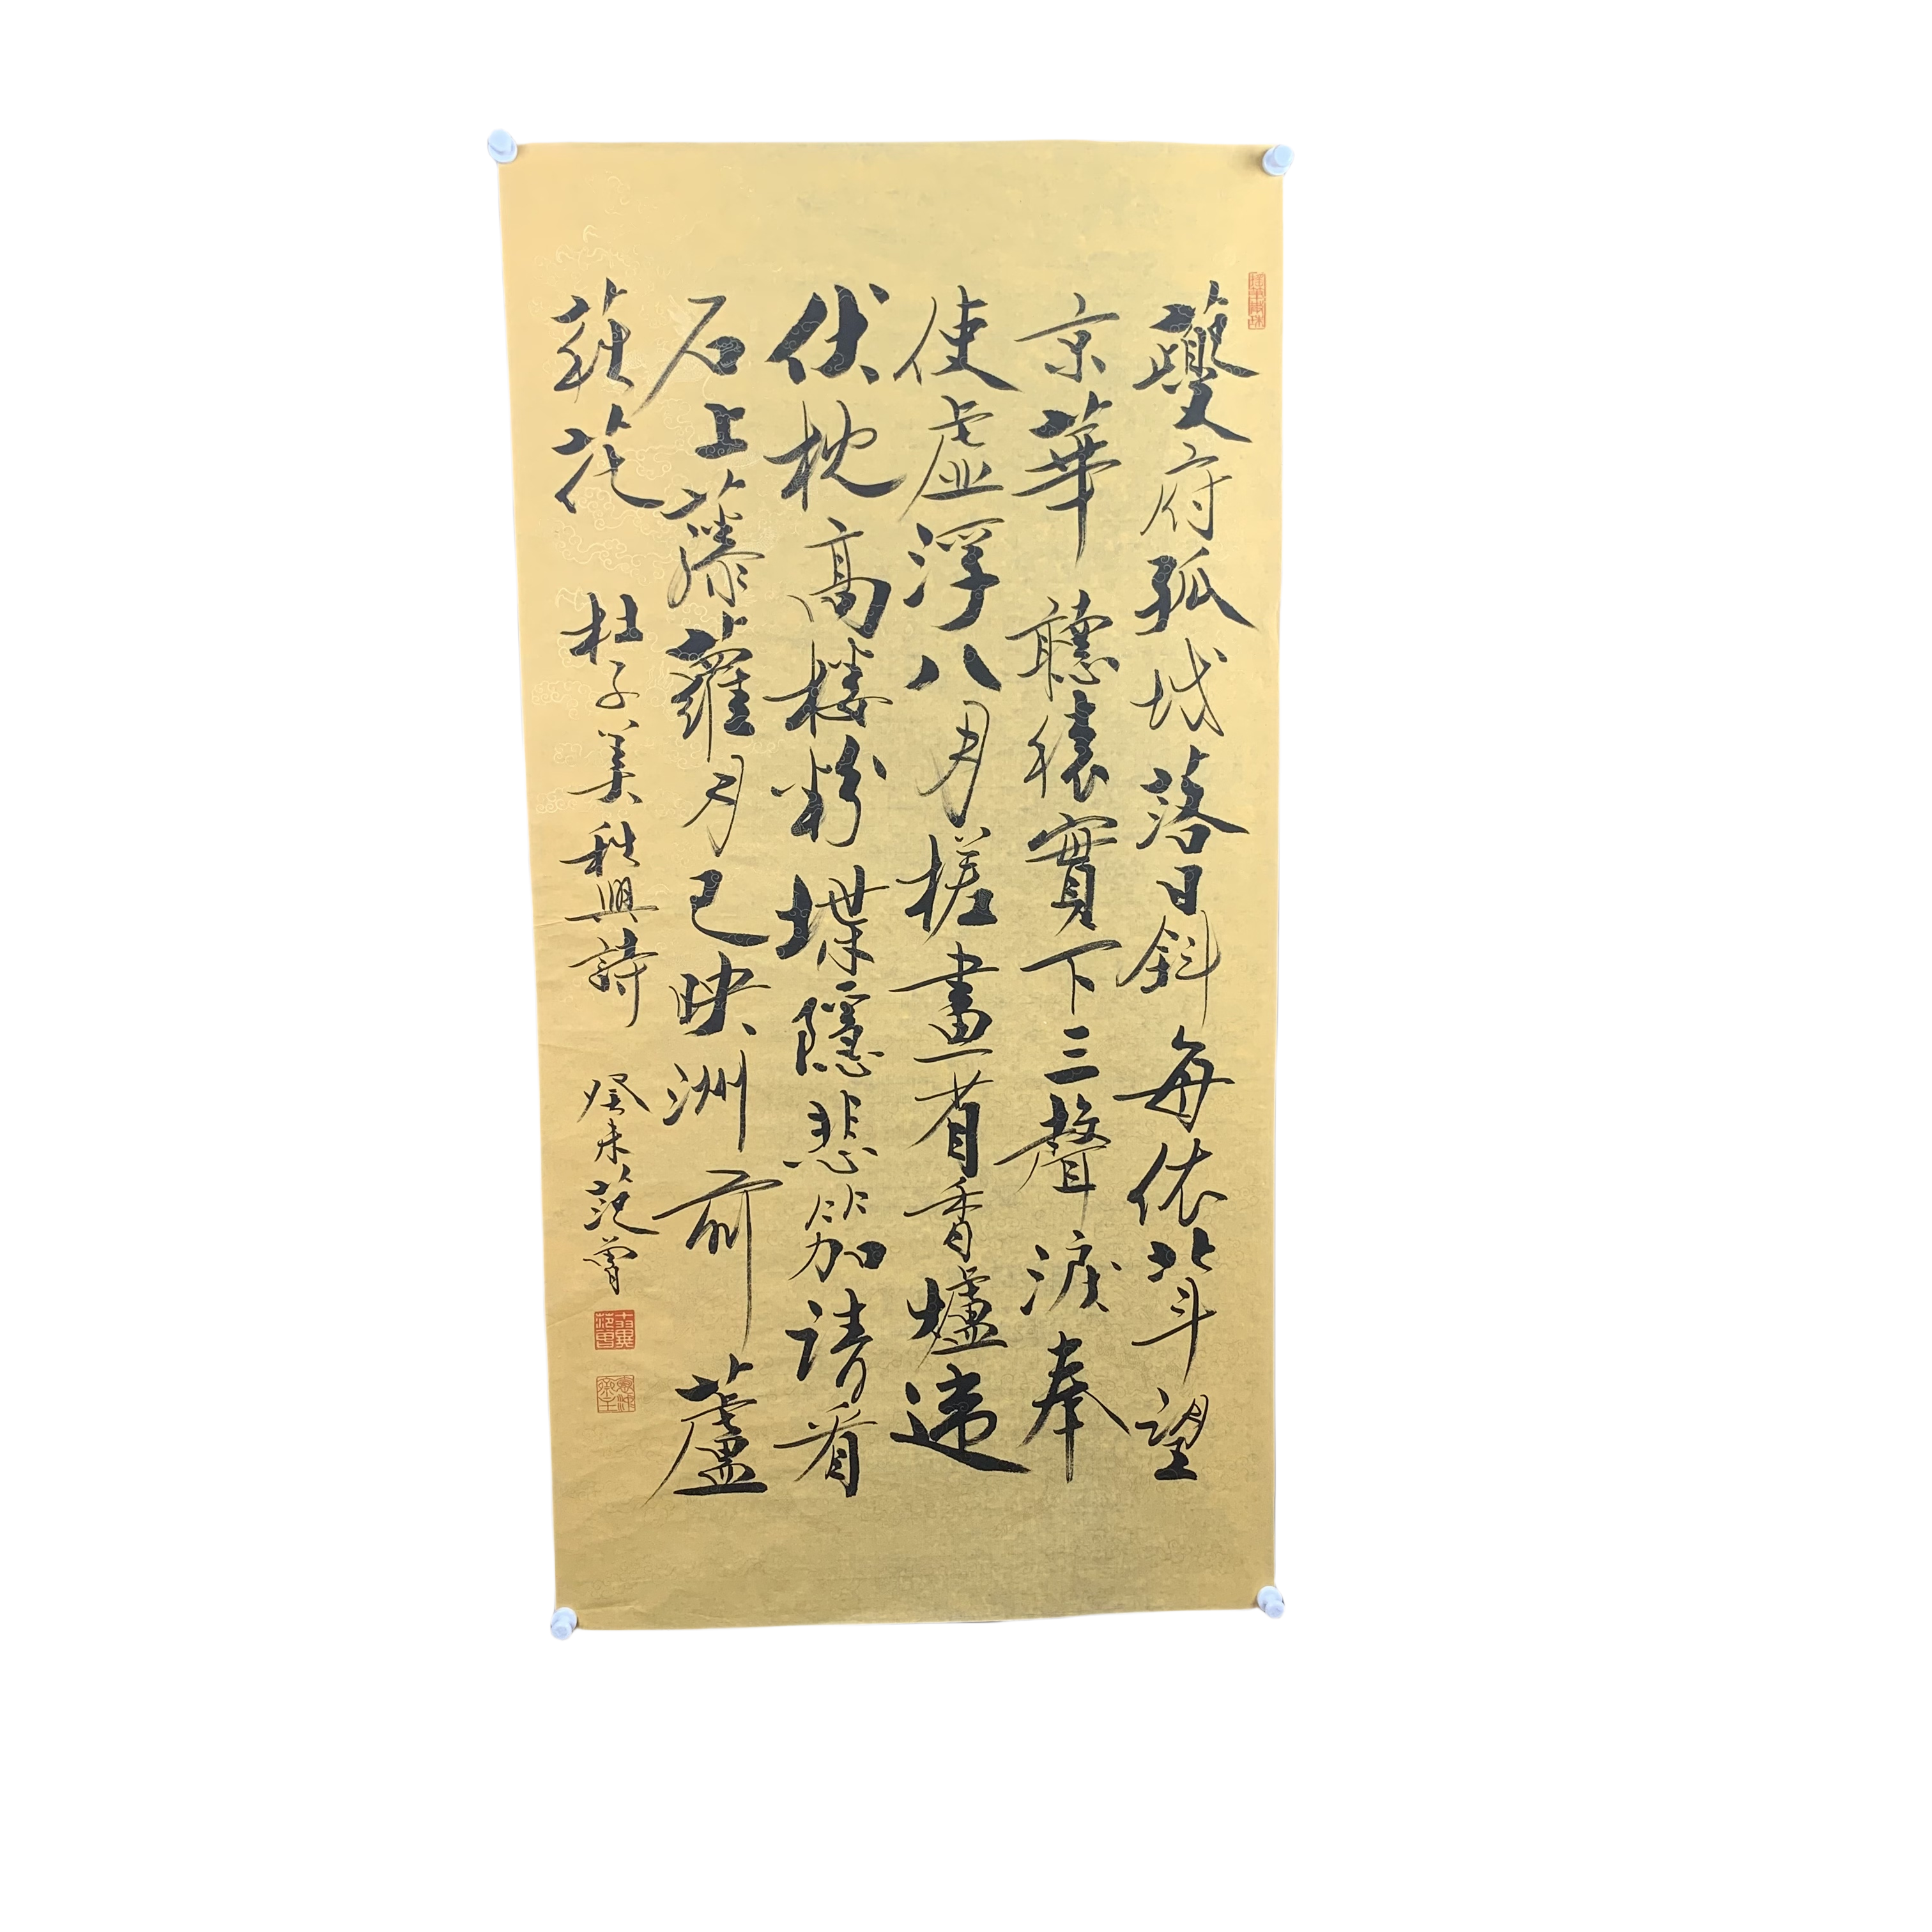 夔府孤城落日斜每依北斗望
京華聽猿實下三聲淚奉
使虛浮八月槎畫省香爐違
伏枕高楼粉堞隱悲笳请看
石上藤蘿月已映洲前蘆
荻花
杜子美秋興詩
癸未范曾